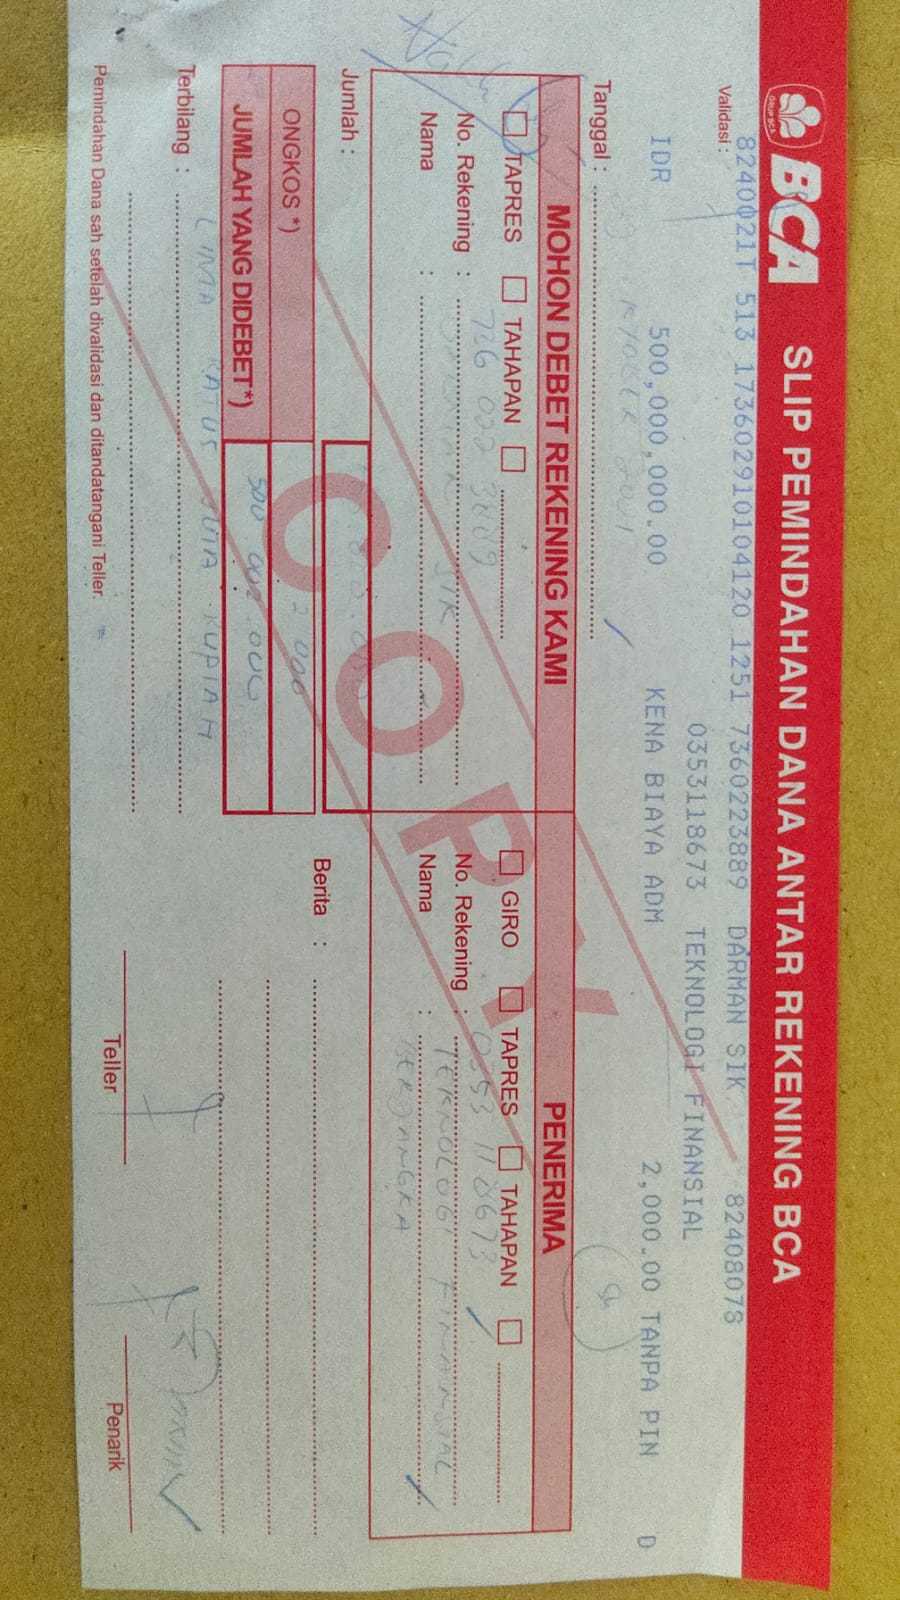 BCA SLIP PEMINDAHAN DANA ANTAR REKENING BCA
GRUP BCA
Validasi : 8240021T 513 1736029101041​20 1251 7360223889 DARMAN SIK 8240807S
0353118673 TEKNOLOGI FINANSIAL
IDR 500,000,000.00 KENA BIAYA ADM 2,000.00 TANPA PIN D
Tanggal :
MOHON DEBET REKENING KAMI
TAPRES TAHAPAN
No. Rekening : 736 022 3889
Nama : DARMAN SIK
PENERIMA
GIRO TAPRES TAHAPAN
No. Rekening : 0353 118673
Nama : TEKNOLOGI FINANSIAL
BERJANGKA
Jumlah :
ONGKOS *) 2 000
JUMLAH YANG DIDEBET*) 500 002.000
Berita :
Terbilang : LIMA RATUS JUTA RUPIAH
Teller
Penarik
Pemindahan Dana sah setelah divalidasi dan ditandatangani Teller.
COPY